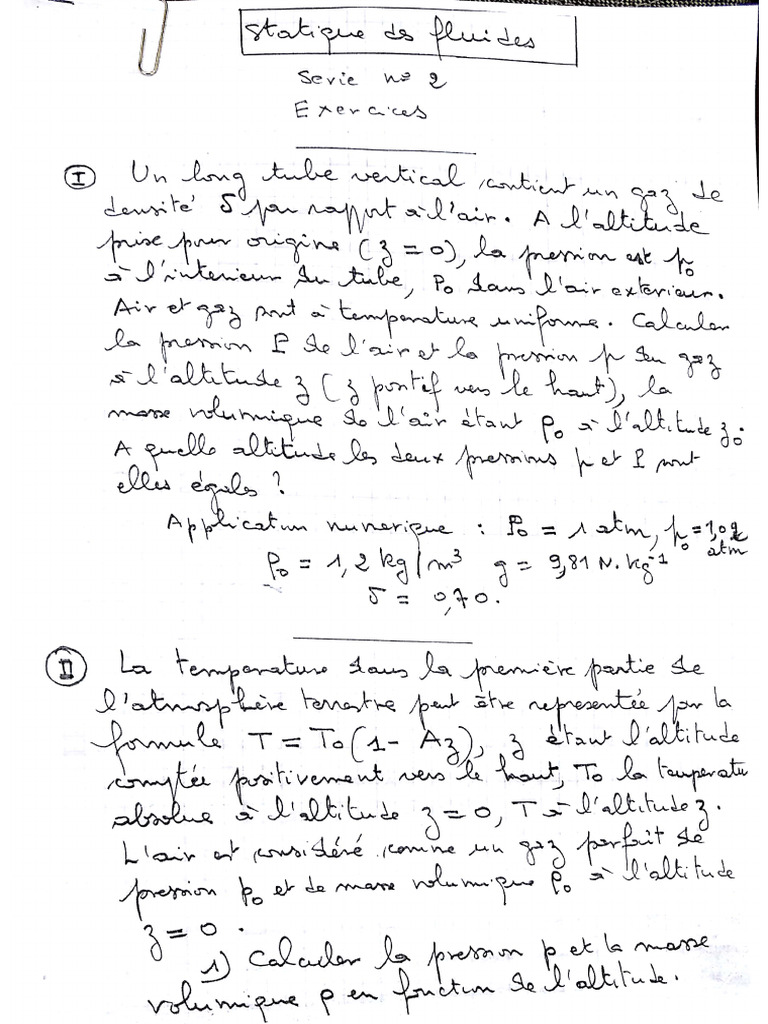 Statique des fluides
Serie n° 2
Exercices
I Un long tube vertical contient un gaz de
densité δ par rapport à l'air. A l'altitude
prise pour origine (z = 0), la pression est p₀
à l'interieur du tube, P₀ dans l'air exterieur.
Air et gaz sont à température uniforme. Calculer
la pression P de l'air et la pression p du gaz
à l'altitude z (z positif vers le haut), la
masse volumique de l'air étant ρ₀ à l'altitude z₀.
A quelle altitude les deux pressions p et P sont
elles égales ?
Application numerique : P₀ = 1 atm, p₀ = 1,02 atm
ρ₀ = 1,2 kg/m³ g = 9,81 N.kg⁻¹
δ = 0,70.
II La temperature dans la première partie de
l'atmosphère terrestre peut être representée par la
formule T = T₀(1 - Az), z étant l'altitude
comptée positivement vers le haut, T₀ la temperature
absolue à l'altitude z = 0, T à l'altitude z.
L'air est considéré comme un gaz parfait de
pression p₀ et de masse volumique ρ₀ à l'altitude
z = 0.
1) Calculer la pression p et la masse
volumique ρ en fonction de l'altitude.